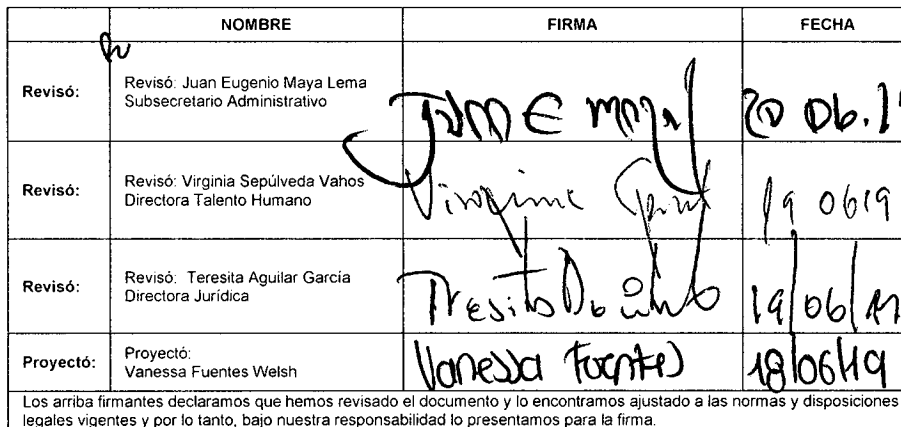 NOMBRE FIRMA FECHA
Revisó: Revisó: Juan Eugenio Maya Lema
Subsecretario Administrativo
Juan E Maya 20 06.1
Revisó: Revisó: Virginia Sepúlveda Vahos
Directora Talento Humano
Virginia 19 0619
Revisó: Revisó: Teresita Aguilar García
Directora Jurídica
Teresita 19/06/19
Proyectó: Proyectó:
Vanessa Fuentes Welsh
Vanessa Fuentes 18/06/19
Los arriba firmantes declaramos que hemos revisado el documento y lo encontramos ajustado a las normas y disposiciones
legales vigentes y por lo tanto, bajo nuestra responsabilidad lo presentamos para la firma.